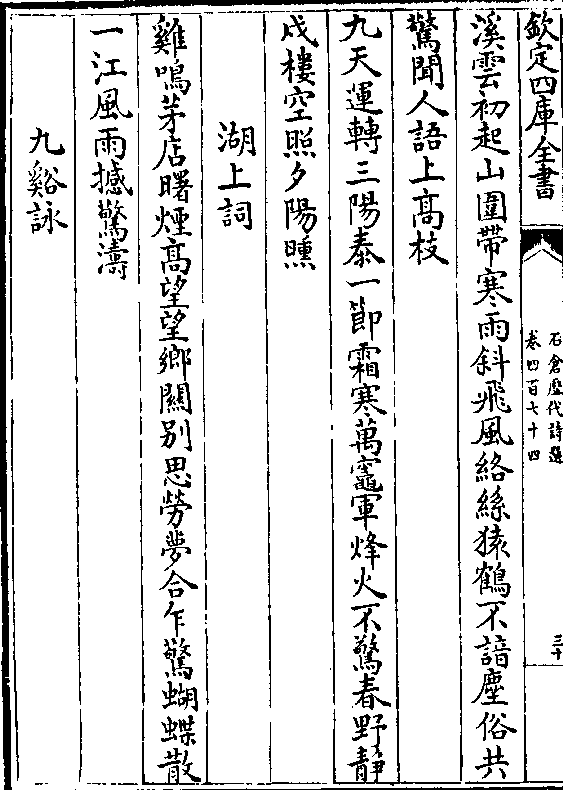 欽定四庫全書
石倉歷代詩選
卷四百七十四
三十
溪雲初起山圍帶寒雨斜飛風絡絲猿鶴不諳塵俗共
驚聞人語上高枝
九天運轉三陽泰一節霜寒萬竈軍烽火不驚春野靜
戍樓空照夕陽曛
湖上詞
雞鳴茅店曙煙高望望鄉關別思勞夢合乍驚蝴蝶散
一江風雨撼驚濤
九谿詠